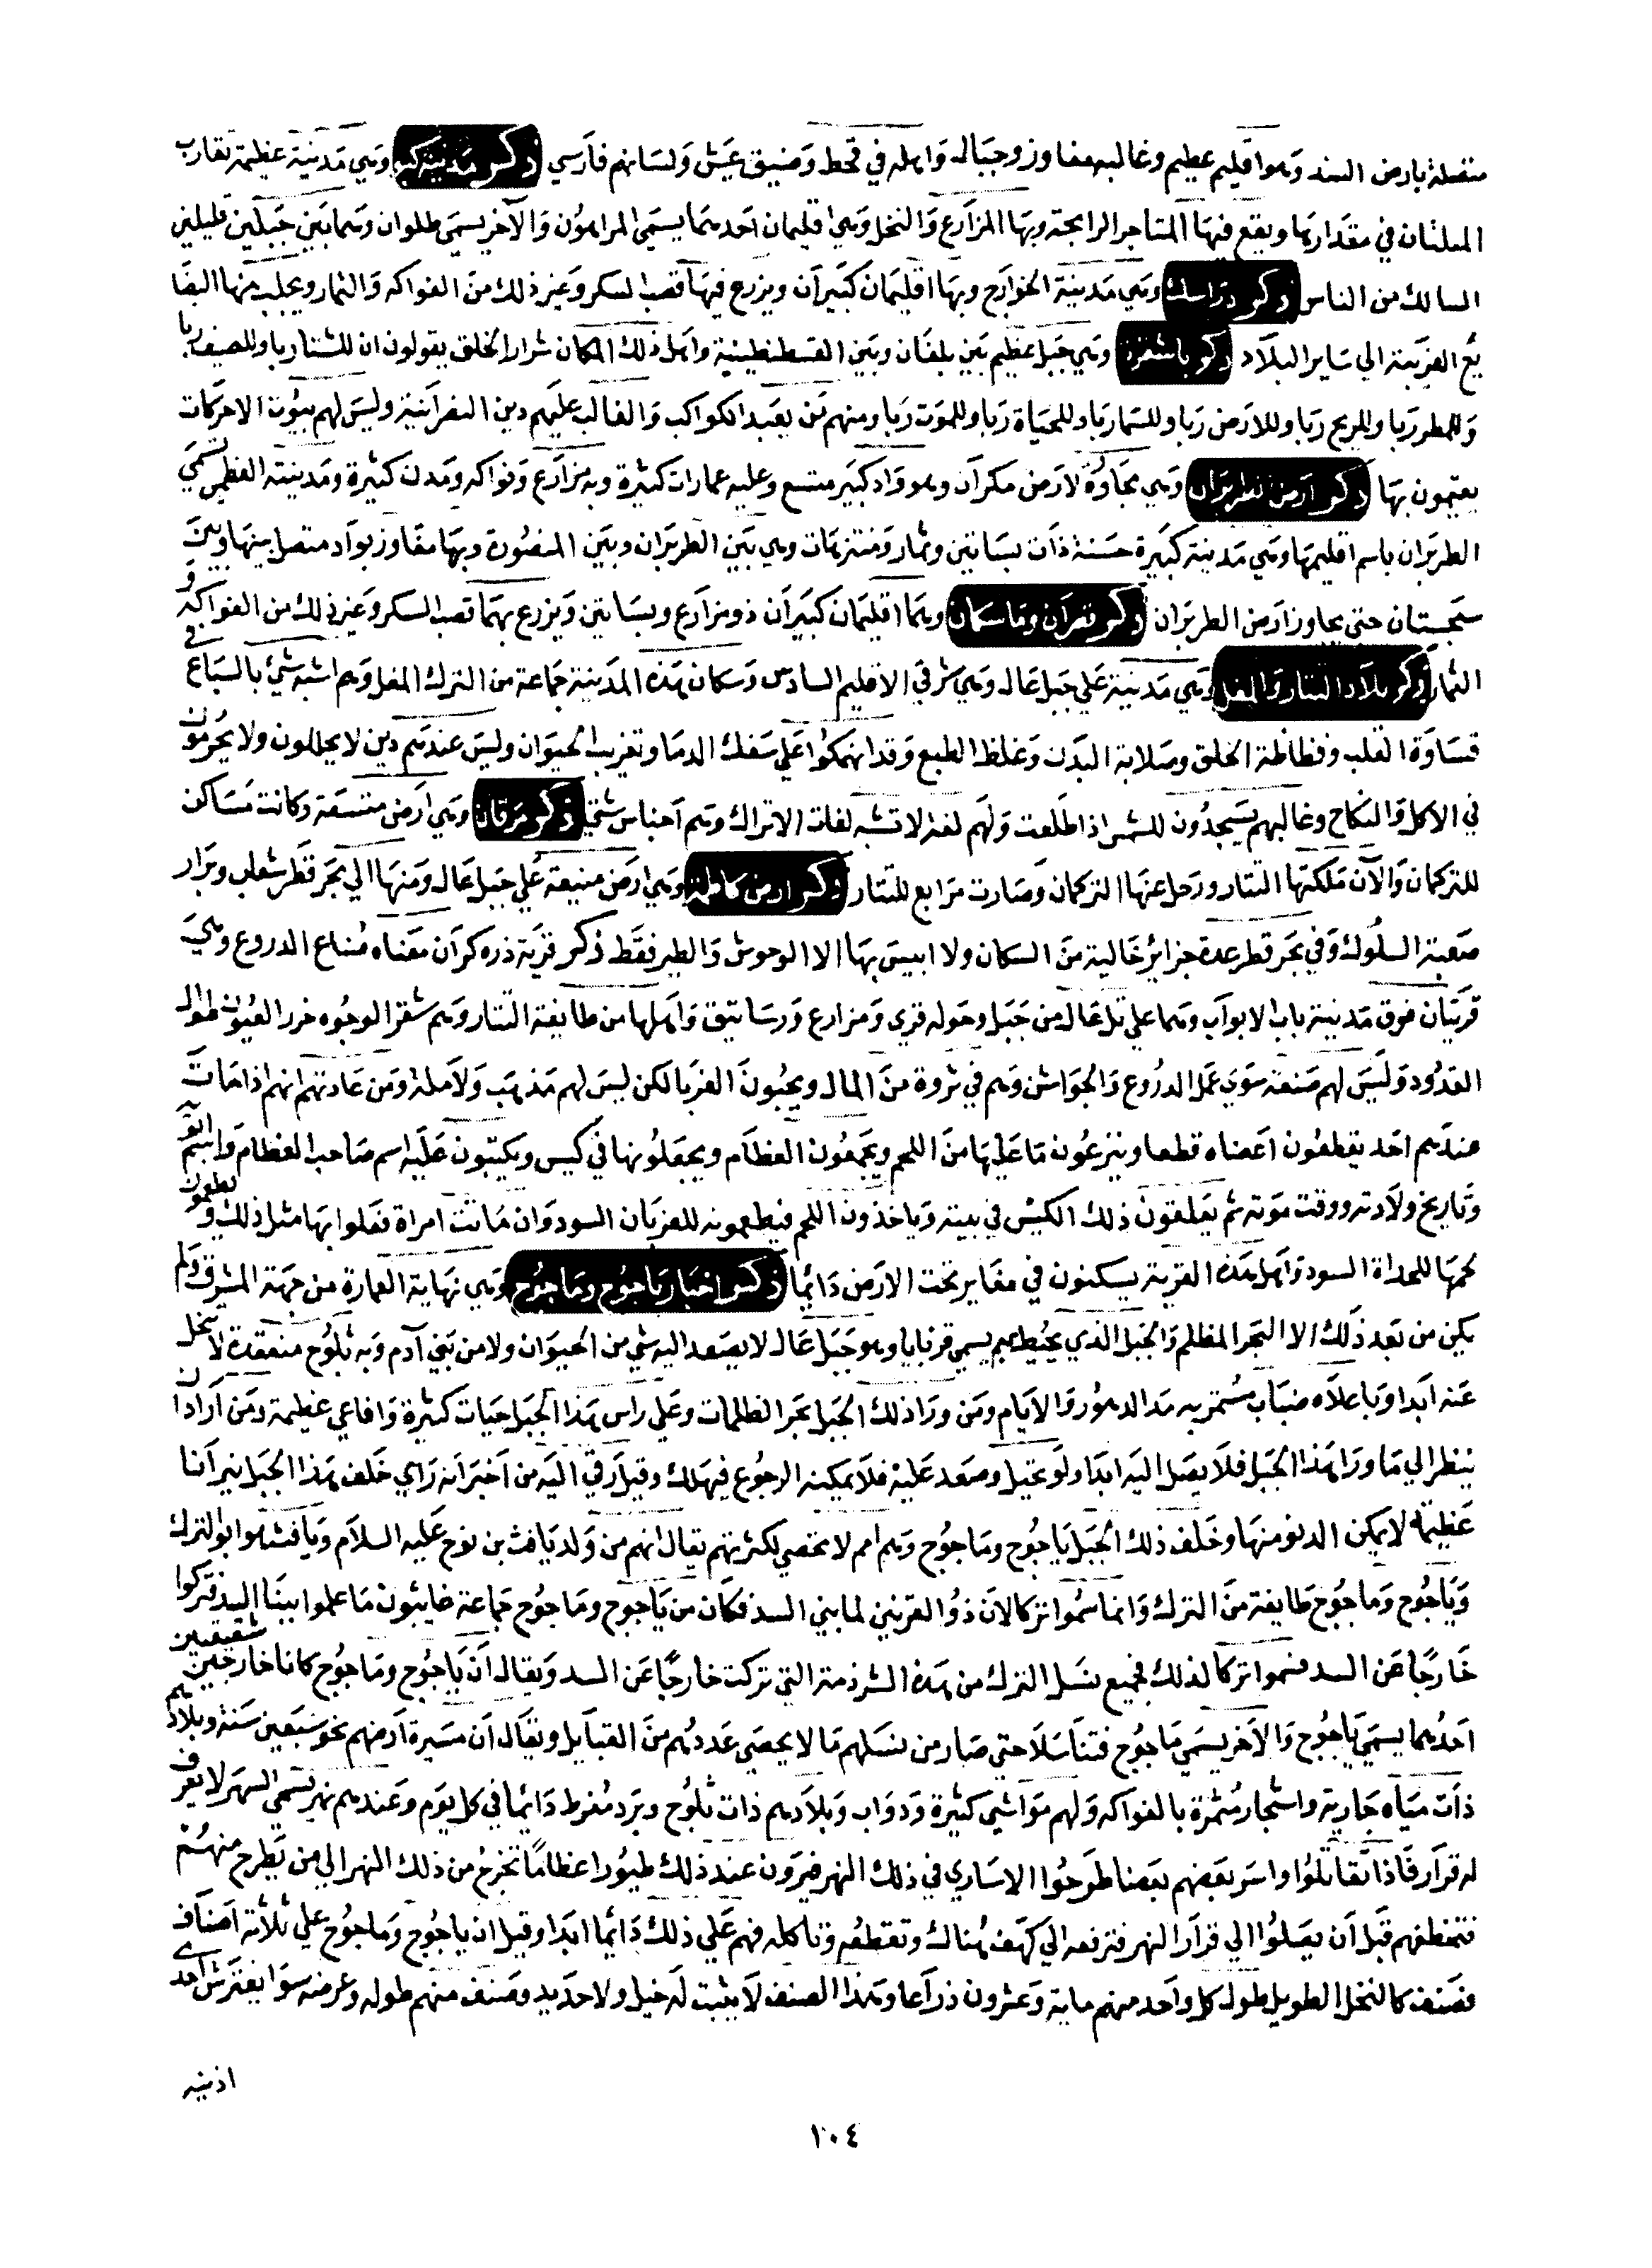 متصلة بارض السند وهو اقليم عظيم وغالبه مفاوز وجباله واهله في قحط وضيق عيش ولسانهم فارسي ذكر مدينة وهي مدينة عظيمة تقارب
الملتان في مقدارها ويقع فيها المتاجر الرابحة وبها المزارع والنخل وهي اقليمان احدهما يسمي الراهون والآخر يسمي طلوان وهما بين جبلين قليلين
السالك من الناس ذكر دراسك وهي مدينة الخوارج وبها اقليمان كبيران ويزرع فيها قصب السكر وغير ذلك من الفواكه والثمار ويجلب منها البضا
يع الغريبة الي ساير البلاد ذكر وهي جبل عظيم بين بلغان وبين القسطنطينية واهل ذلك المكان شرار الخلق يقولون ان للشتا ربا وللصيف ربا
وللمطر ربا وللريح ربا وللارض ربا وللسما ربا وللحياة ربا وللموت ربا ومنهم من يعبد الكواكب والغالب عليهم دين النصرانية وليس لهم بيوت الا حركات
يقيمون بها ذكر ارض الطربران وهي مجاورة لارض مكران وهو واد كبير متسع وعليه عمارات كثيرة وبه مزارع وفواكه ومدن كثيرة ومدينته العظمي تسمي
الطربران باسم اقليمها وهي مدينة كبيرة حسنة ذات بساتين وثمار ومنتزهات وهي بين الطربران وبين المنصورة وبها مفاوز بواد متصل بينها وبين
سجستان حتي يجاوز ارض الطربران ذكر قيران وماسكان وهما اقليمان كبيران ذو مزارع وبساتين ويزرع بهما قصب السكر وغير ذلك من الفواكه و
الثمار ذكر بلاد التتار والمغل وهي مدينة علي جبل عال وهي شرقي الاقليم السادس وسكان هذه المدينة جماعة من الترك المغل وهم اشبه شيء بالسباع في
قساوة القلب وفظاظة الخلق وصلابة البدن وغلظ الطبع وقد انهمكوا علي سفك الدما وتعذيب الحيوان وليس عندهم دين لا يحللون ولا يحرمون
في الاكل والنكاح وغالبهم يسجدون للشمس اذا طلعت ولهم لغة لا تشبه لغات الاتراك وهم اجناس شتي ذكر وهي ارض متسعة وكانت مساكن
للتركمان والآن ملكتها التتار ورحل عنها التركمان وصارت مرابع للتتار ذكر ارض وهي ارض منيعة علي جبل عال ومنها الي بحر قطر شعاب وبرار
صعبة السلوك وفي بحر قطر عدة جزائر خالية من السكان ولا انيس بها الا الوحوش والطير فقط ذكر قرية ذره كران معناه صناع الدروع وهي
قريتان فوق مدينة باب الابواب وهما علي تل عال من جبل وحوله قري ومزارع ورساتيق واهلها من طايفة التتار وهم شقر الوجوه خزر العيون طوال
القدود وليس لهم صنعة سوي عمل الدروع والجواشن وهم في ثروة من المال ويحبون الغربا لكن ليس لهم مذهب ولا ملة ومن عادتهم انهم اذا مات
عندهم احد يقطعون اعضاه قطعا وينزعون ما عليها من اللحم ويجمعون العظام ويجعلونها في كيس ويكتبون عليه اسم صاحب العظام واسم ابيه
وتاريخ ولادته ووقت موته ثم يعلقون ذلك الكيس في بيته وياخذون اللحم فيطعمونه للغربان السود وان ماتت امراة فعلوا بها مثل ذلك و يطعمون
لحمها للحداة السود واهل هذه القرية يسكنون في مغاير تحت الارض دائما ذكر اخبار ياجوج وماجوج وهي نهاية العمارة من جهة المشرق ولم
يكن من بعد ذلك الا البحر المظلم والجبل الذي يحيط بهم يسمي قرنايا وهو جبل عال لا يصعد اليه شي من الحيوان ولا من بني آدم وبه ثلوج منعقدة لا تنحل
عنه ابدا وباعلاه ضباب مستمر به مدا الدهور والايام ومن ورا ذلك الجبل بحر الظلمات وعلي راس هذا الجبل حيات كثيرة وافاعي عظيمة ومن اراد ان
ينظر الي ما ورا هذا الجبل فلا يصل اليه ابدا ولو تحيل وصعد عليه فلا يمكنه الرجوع فيهلك وقيل رقي اليه من اخبر انه راي خلف هذا الجبل نيرانا
عظيمة لا يمكن الدنو منها وخلف ذلك الجبل ياجوج وماجوج وهم امم لا تحصي لكثرتهم يقال انهم من ولد يافث بن نوح عليه السلام ويافث هو ابو الترك
وياجوج وماجوج طايفة من الترك وانما سموا تركا لان ذو القرنين لما بني السد فكان من ياجوج وماجوج جماعة غايبون ما علموا ببنا السد فتركوا
خارجا عن السد فسموا تركا لذلك فجميع نسل الترك من هذه الشرذمة التي تركت خارجا عن السد ويقال ان ياجوج وماجوج كانا خارجين شقيقين
احدهما يسمي ياجوج والآخر يسمي ماجوج فتناسلا حتي صار من نسلهم ما لا يحصي عددهم من القبايل ويقال ان مسيرة ارضهم نحو سبعين سنة وبلادهم
ذات مياه جارية واشجار مثمرة بالفواكه ولهم مواشي كثيرة ودواب وبلادهم ذات ثلوج وبرد مفرط دائما في كل يوم وعندهم نهر يسمي السهر لا يعرف
له قرار فاذا تقاتلوا واسر بعضهم بعضا طرحوا الاساري في ذلك النهر فيرون عند ذلك طيورا عظاما تخرج من ذلك النهر الي من يطرح منهم
فتخطفهم قبل ان يصلوا الي قرار النهر فترفعه الي كهف هناك وتقطعه وتاكله فهم علي ذلك دائما ابدا وقيل ان ياجوج وماجوج علي ثلاثة اصناف
فصنف كالنخل الطويل طول كل واحد منهم ماية وعشرون ذراعا وهذا الصنف لا يثبت له خيل ولا حديد وصنف منهم طوله وعرضه سوا يفترش احدي
اذنيه
١٠٤